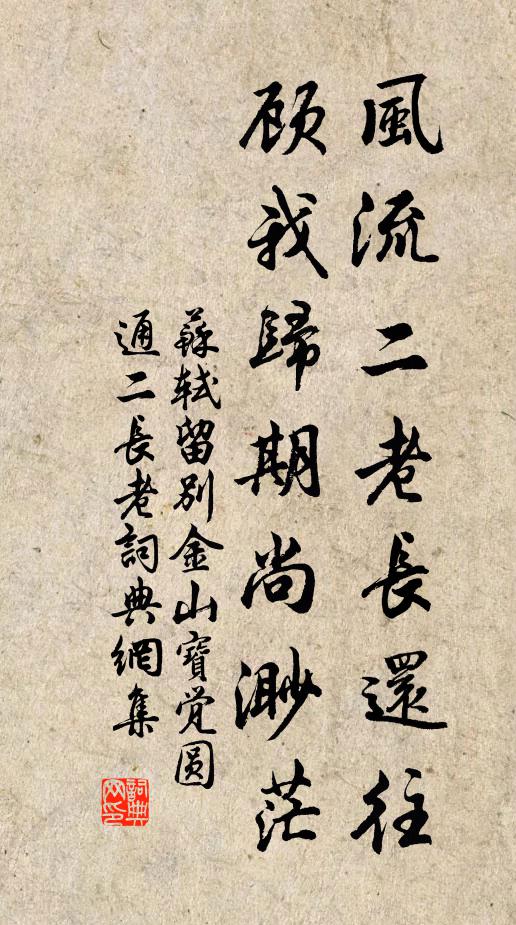 風流二老長還往
顾我歸期尚渺茫
蘇軾留别金山寶觉圆
通二長老詞典網集
詞典
网印